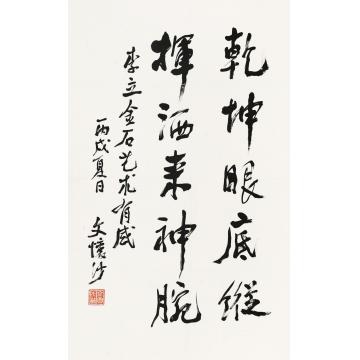 乾坤眼底縱
揮洒来神腕
李立金石艺术有感
丙戌夏日
文懷沙